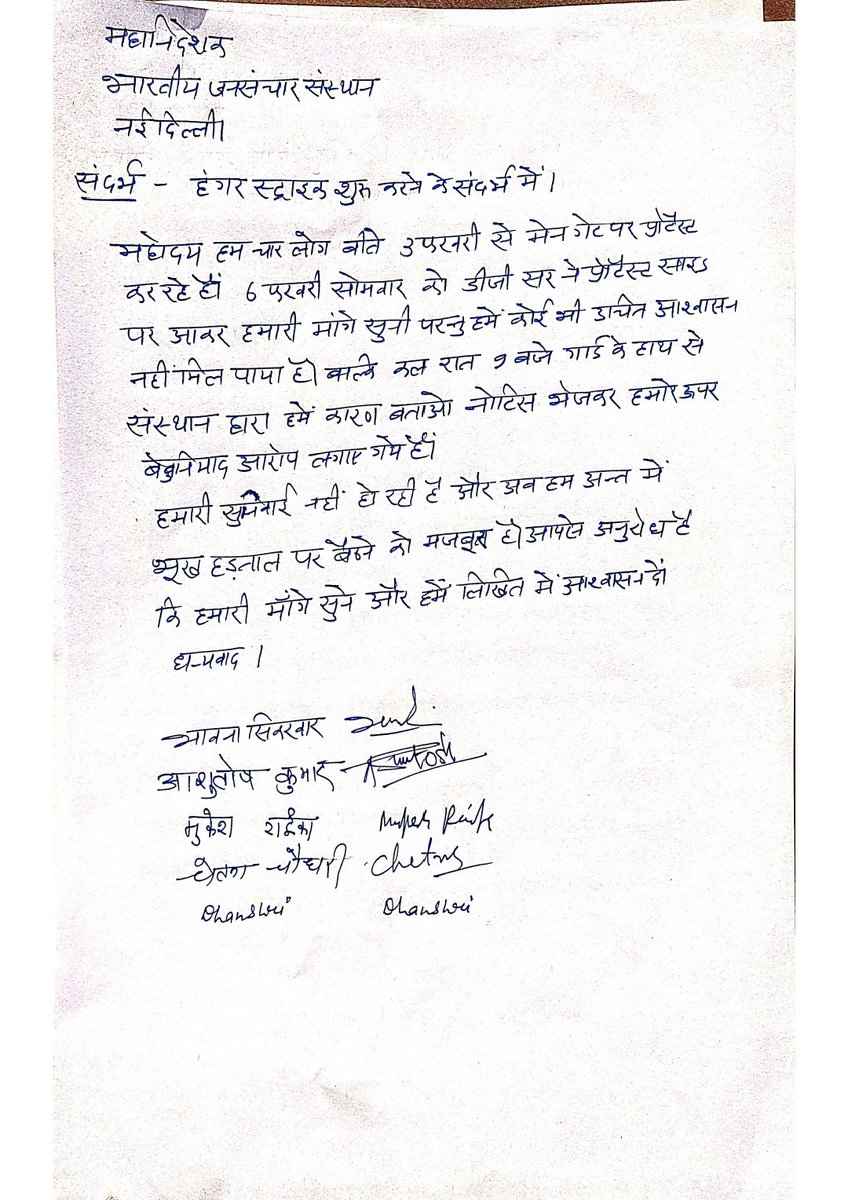 महानिदेशक
भारतीय जनसंचार संस्थान
नई दिल्ली।
संदर्भ - हंगर स्ट्राइक शुरू करने के संदर्भ में।
महोदय हम चार लोग बीते 3 फरवरी से मेन गेट पर प्रोटैस्ट
कर रहे हैं। 6 फरवरी सोमवार को डीजी सर ने प्रोटैस्ट साइड
पर आकर हमारी मांगे सुनी परन्तु हमें कोई भी उचित आश्वासन
नहीं मिल पाया है। बल्कि कल रात 9 बजे गार्ड के हाथ से
संस्थान द्वारा हमें कारण बताओ नोटिस भेजकर हमारे ऊपर
बेबुनियाद आरोप लगाए गये हैं।
हमारी सुनवाई नहीं हो रही है और अब हम अन्त में
भूख हड़ताल पर बैठने को मजबूर है। आपसे अनुरोध है
कि हमारी माँगे सुने और हमें लिखित में आश्वासन दें।
धन्यवाद ।
भावना सिकरवार
आशुतोष कुमार Ashutosh
मुकेश राईका Mukesh Raika
चेतना चौधरी Chetna
Dhanshri Dhanshri